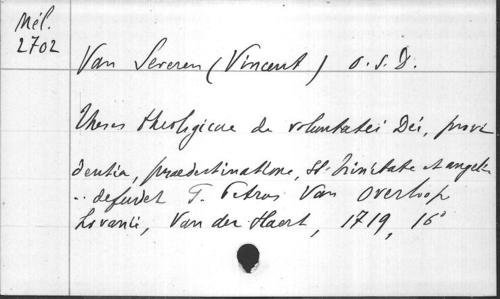 Mél.
2702
Van Severen (Vincent) o.s.D.
Theses theologicae de voluntatei Dei, provi
dentia, praedestinatione, SS. Trinitate et angelis
.. defendet F. Petrus Van Overloop
Lovanii, Van der Haert, 1719, 16°